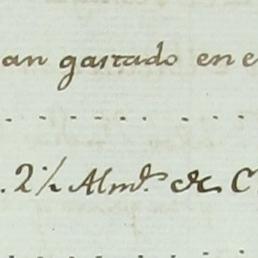 an gastado en e
. 2 ½ Alms. de C